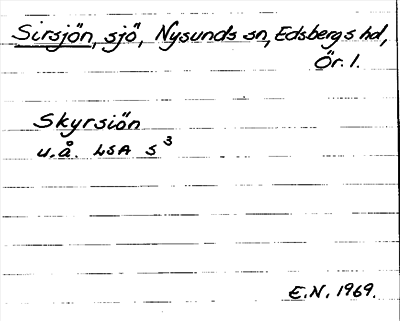 Sirsjön, sjö, Nysunds sn, Edsbergs hd,
Ör. l.
Skyrsiön
u.å. LSA S³
E.N. 1969.